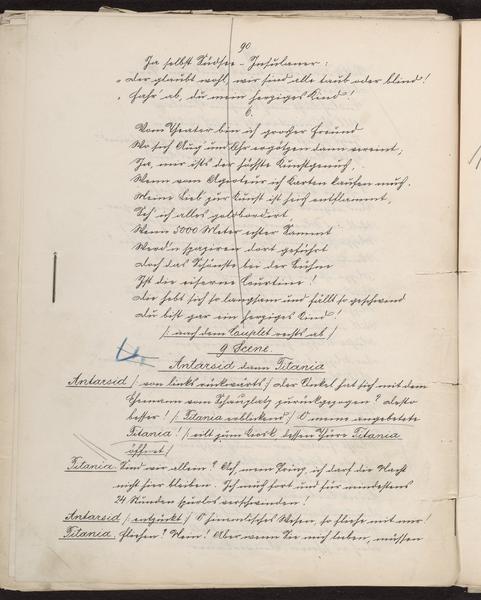 90
Ja selbst Südsee-Insulaner:
„Der glaubt wohl, wir sind alle taub oder blind!
„Fahr' ab, du mein herziges Kind!
6.
Vom Theater bin ich großer Freund
Wo sich Aug' und Ohr ergötzen dann vereint;
Ja, mir ist's der höchste Kunstgenuß,
Wenn vom Agioteur ich Karten kaufen muß.
Meine Lieb' zur Kunst ist heiß entflammt,
Seh' ich alles goldbordiert,
Wenn 5000 Meter echter Sammt
Werd'n spazieren dort geführt
Doch das Schönste bei der Bühne
Ist die eiserne Courtine!
Die hebt sich so langsam und fällt so geschwind
Du bist gar ein herziges Kind!
/: nach dem Couplet rechts ab /
9 Scene.
Antarsid dann Titania
Antarsid /: von links rückwärts / Der Onkel hat sich mit dem
Ehemann vom Schauplatz zurückgezogen? Desto
besser! /: Titania erblickend / O meine angebetete
Titania! /: eilt zum Kiosk, dessen Thüre Titania
öffnet /
Titania. Sind wir allein? Ach mein Prinz, ich darf die Nacht
nicht hier bleiben. Ich muß fort und für mindestens
24 Stunden spurlos verschwinden!
Antarsid /: entzückt / O himmlisches Wesen, so fliehe mit mir!
Titania. Fliehen? Nein! Aber wenn Sie mich lieben, müssen